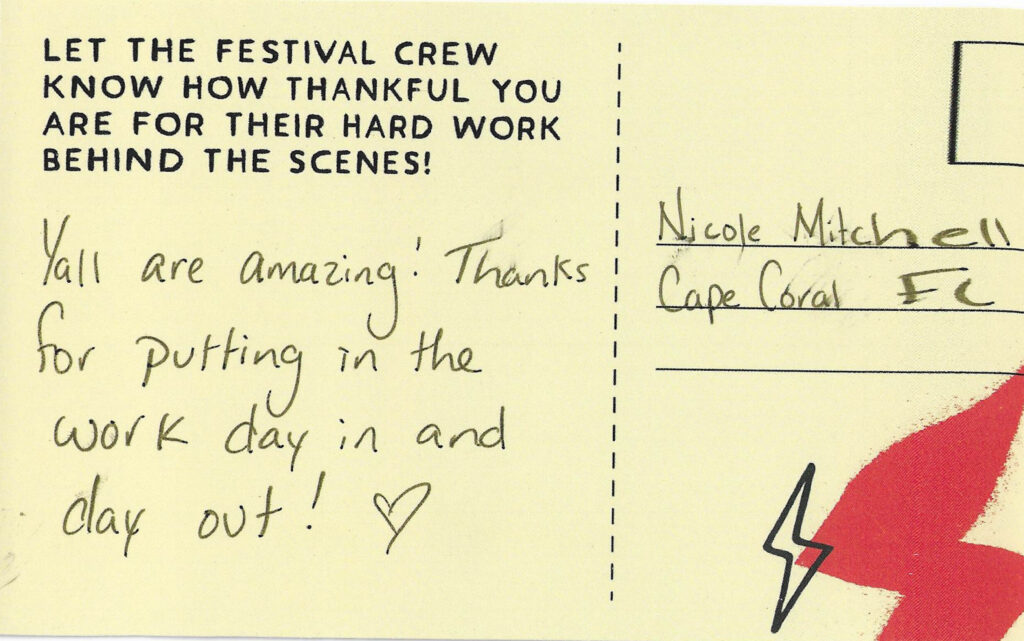 LET THE FESTIVAL CREW
KNOW HOW THANKFUL YOU
ARE FOR THEIR HARD WORK
BEHIND THE SCENES!
Yall are amazing! Thanks
for putting in the
work day in and
day out! ♡
Nicole Mitchell
Cape Coral FL